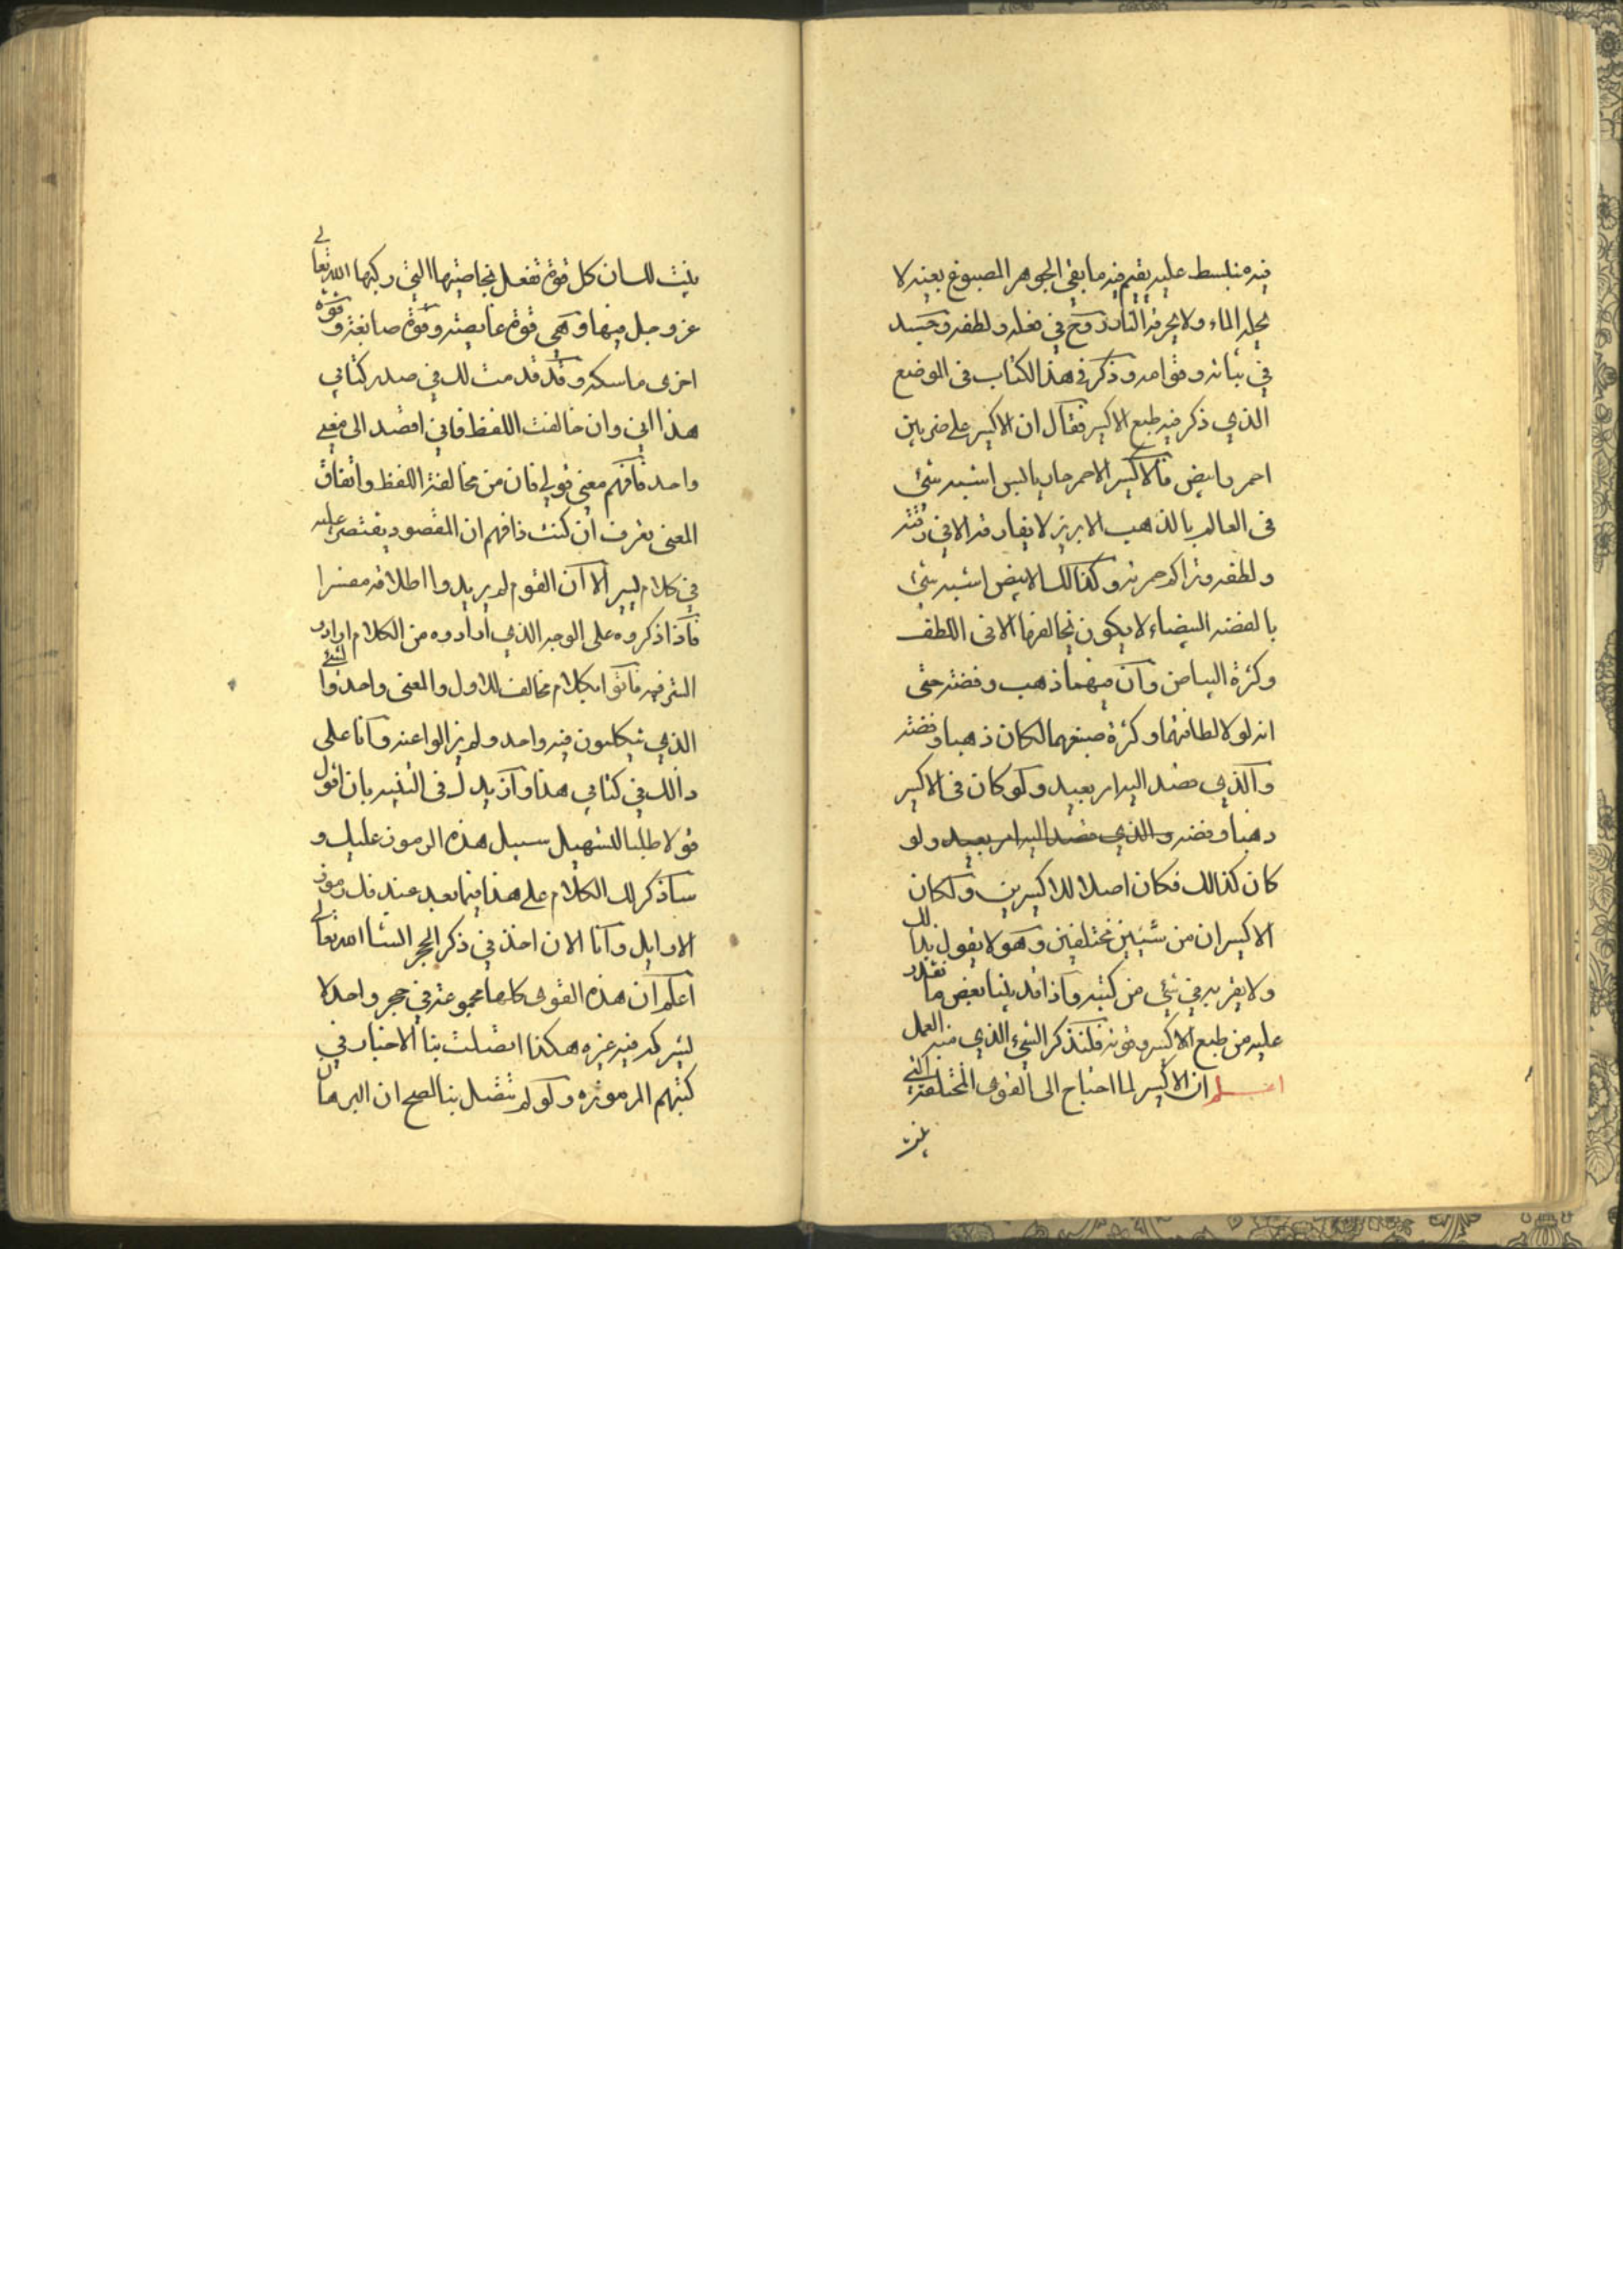 فيه منبسط عليه يقيم فيه ما بقي الجوهر المصبوغ بعينه لا
يحله الماء ولا يحرقه النار روح في فعله ولطفه وجسد
في ثباته وقوامه وذكر في هذا الكتاب في الموضع
الذي ذكر فيه طبع الاكسير فقال ان الاكسير على ضربين
احمر وابيض فالاكسير الاحمر حار يابس اشبه شئ
في العالم بالذهب الابريز لا يفارقه الا في دقته
ولطفه وتراكم حمرته وكذالك الابيض اشبه شئ
بالفضه البيضاء لا يكون يخالفها الا في اللطف
وكثرة البياض وان فيهما ذهب وفضه حتى
انه لولا لطافتهما وكثرة صبغهما لكان ذهبا وفضه
والذي قصد اليه امر بعيد ولو كان في الاكسير
ذهبا وفضه والذي قصد اليه امر بعيد ولو
كان كذالك فكان اصلا للاكسيرين ولكان
الاكسيران من شيئين مختلفين وهو لا يقول بذالك
ولا يقربه في شئ من كتبه واذا قد بينا بعض ما نقدر
عليه من طبع الاكسير وقوته فلنذكر الشئ الذي منه العمل
اعلم ان الاكسير لما احتاج الى القوى المختلفة التي
بينت
بينت لك ان كل قوة تفعل بخاصيتها التي ركبها الله تعالى
عز وجل فيها وهي قوة غايصة وقوة صابغة وقوة
اخرى ماسكه وقد قدمت لك في صدر كتابي
هذا اني وان خالفت اللفظ فاني اقصد الى معنى
واحد فافهم معنى قولي فان من مخالفة اللفظ واتفاق
المعنى تعرف ان كنت ذا فهم ان المقصود يقتصر عليه
في كلام يسير الا ان القوم لم يريدوا اطلاقه مفسرا
فاذا ذكروه على الوجه الذي ارادوه من الكلام ارادو
الستر فيه فاتوا بكلام مخالف للاول والمعنى واحد والشئ
الذي يتكلمون فيه واحد ولم يزالوا عنه وانا على
ذالك في كتابي هذا وازيدك في التنبيه بان اقول
قولا طلبا لتسهيل سبيل هذه الرموز عليك و
ساذكر لك الكلام على هذا فيما بعد عند فك رموز
الاوايل وانا الان اخذ في ذكر الحجر انشا الله تعالى
اعلم ان هذه القوى كلها مجموعة في حجر واحد لا
يشركه فيه غيره هكذا اتصلت بنا الاخبار في
كتبهم المرموزه ولو لم تتصل بنا لصح ان البرهان